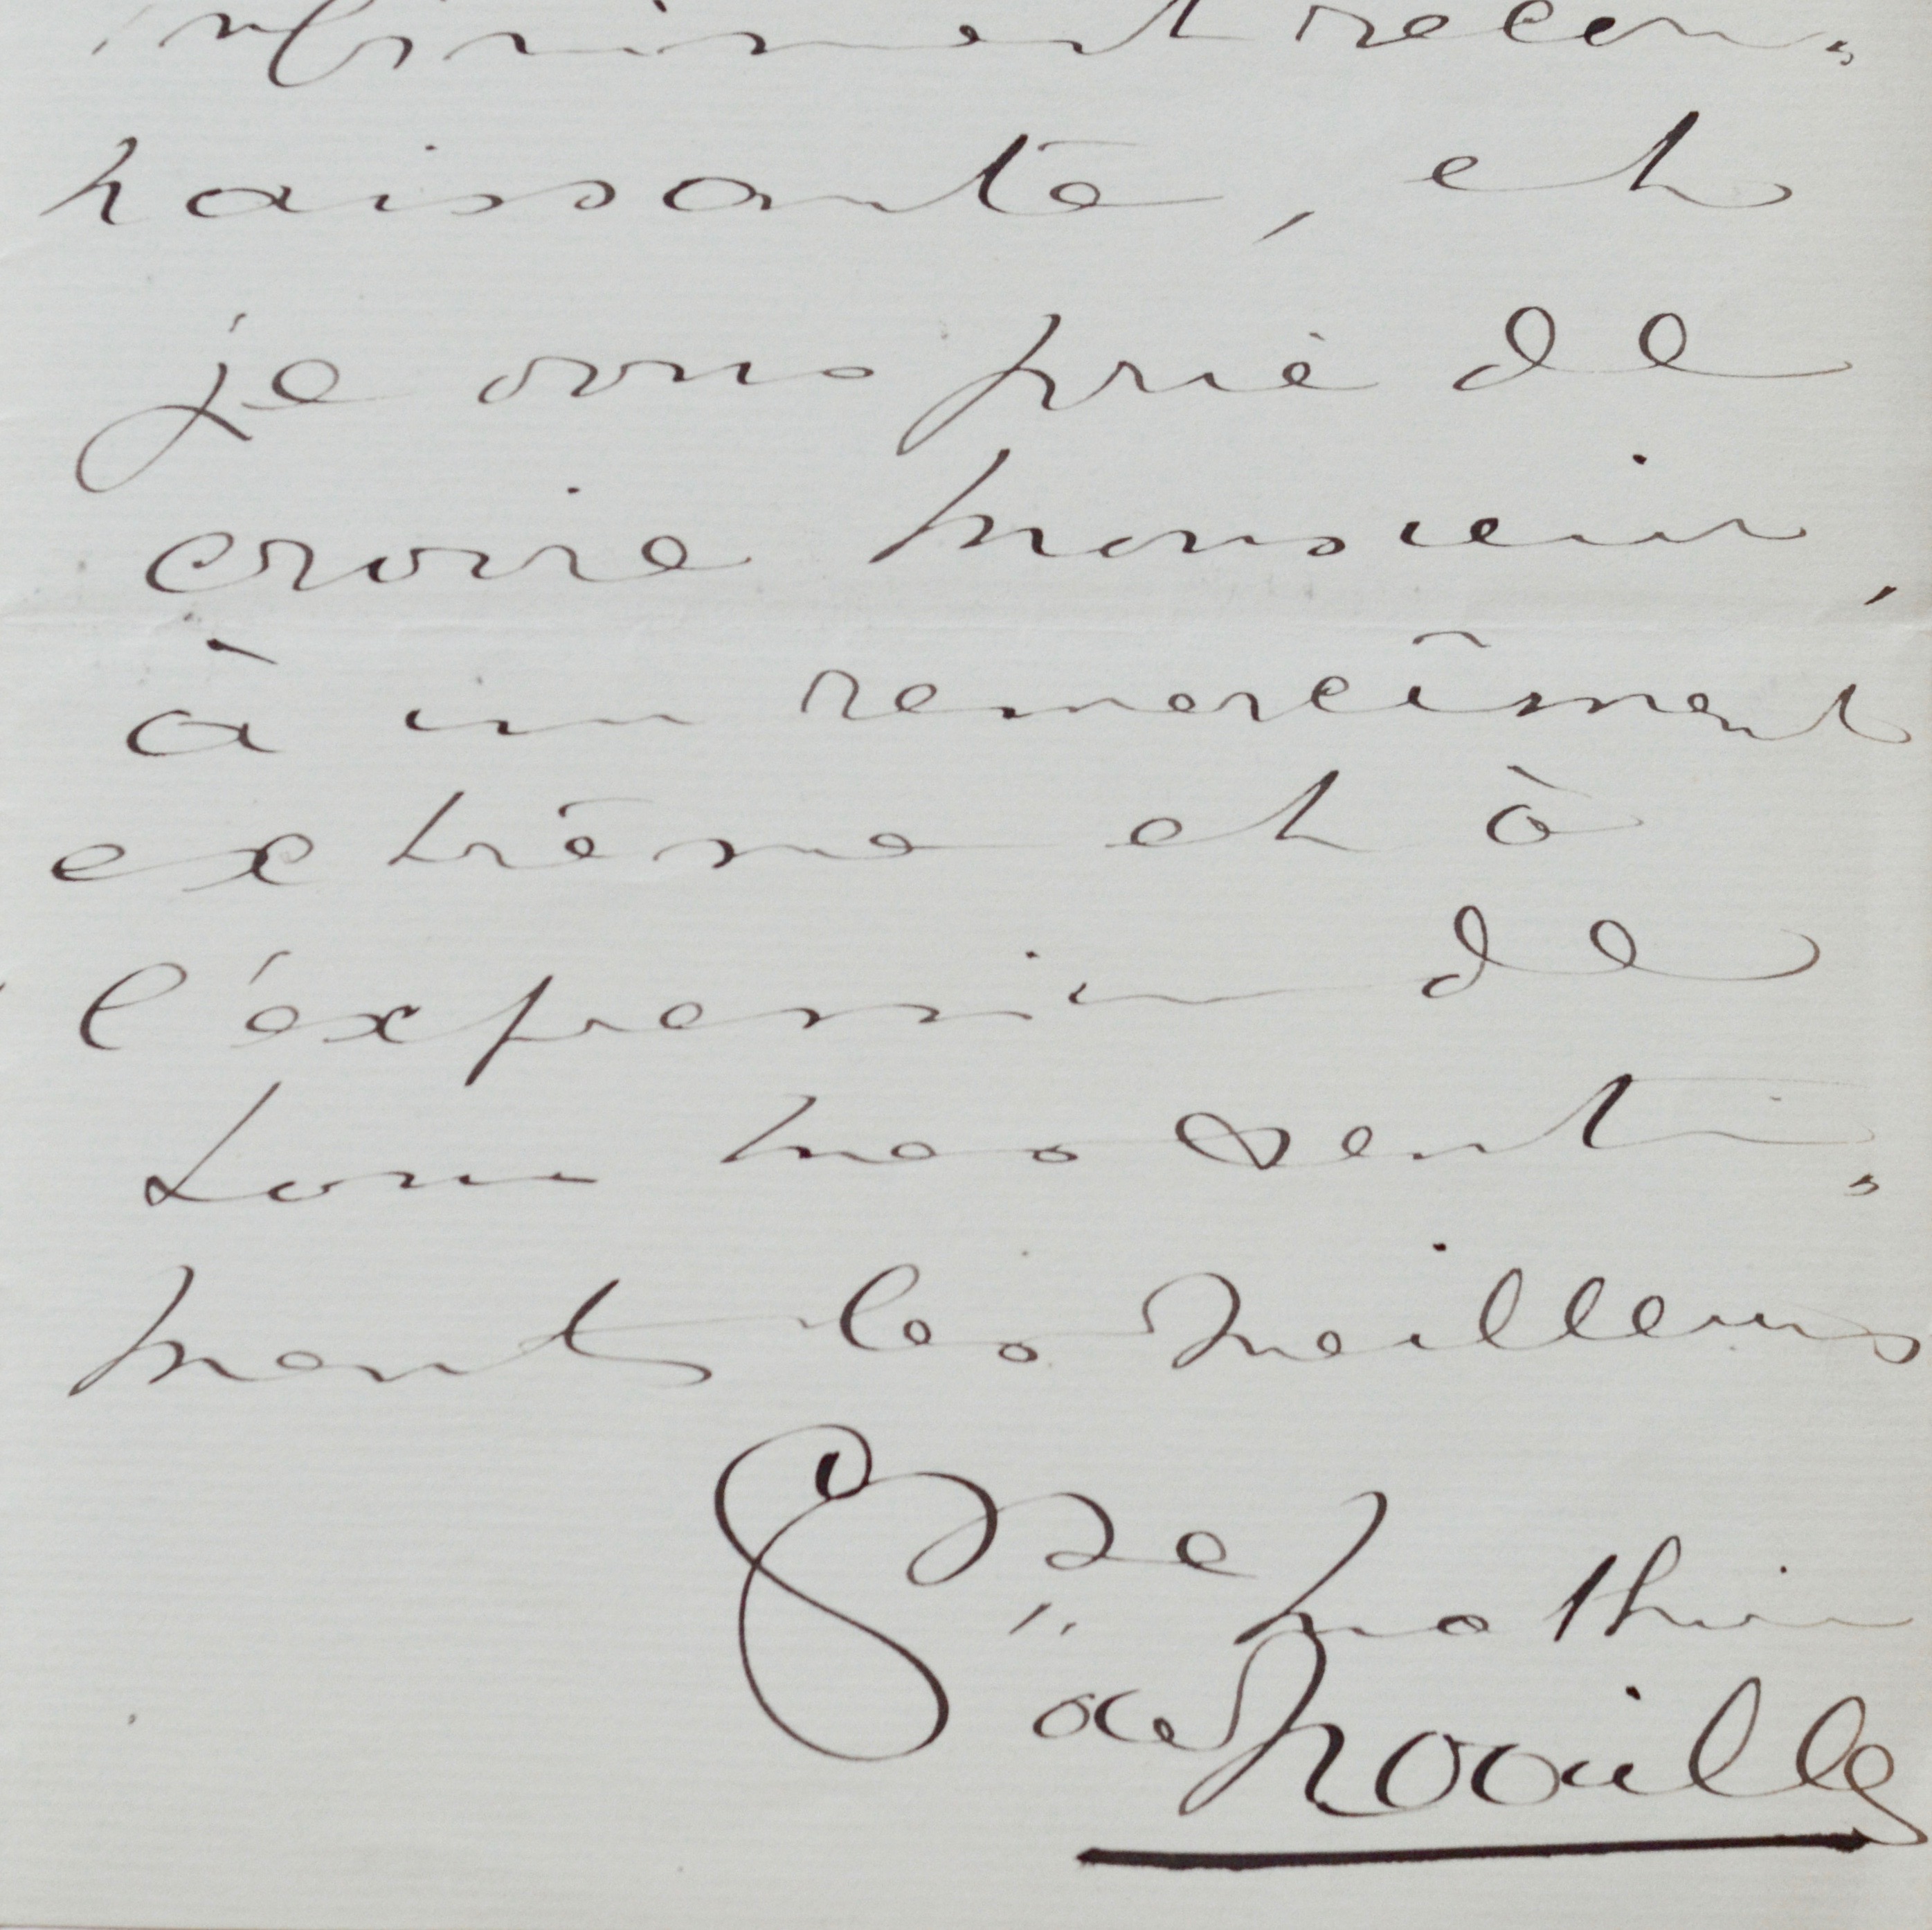 infiniment recon-
naissante, et
je vous prie de
croire Monsieur,
à un remercîment
extrême et à
l'éxpression de
tous mes senti-
ments les meilleurs
Csse Mathieu
de Noailles